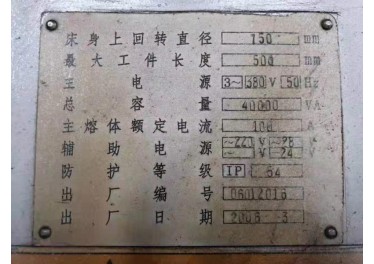 床身上回转直径 750 mm
最大工件长度 500 mm
主电源 3~ 380 V 50 Hz
总容量 40000 VA
主熔体额定电流 100 A
辅助电源 ~220 V ~28 V
~24 V
防护等级 IP 54
出厂编号
出厂日期 2006